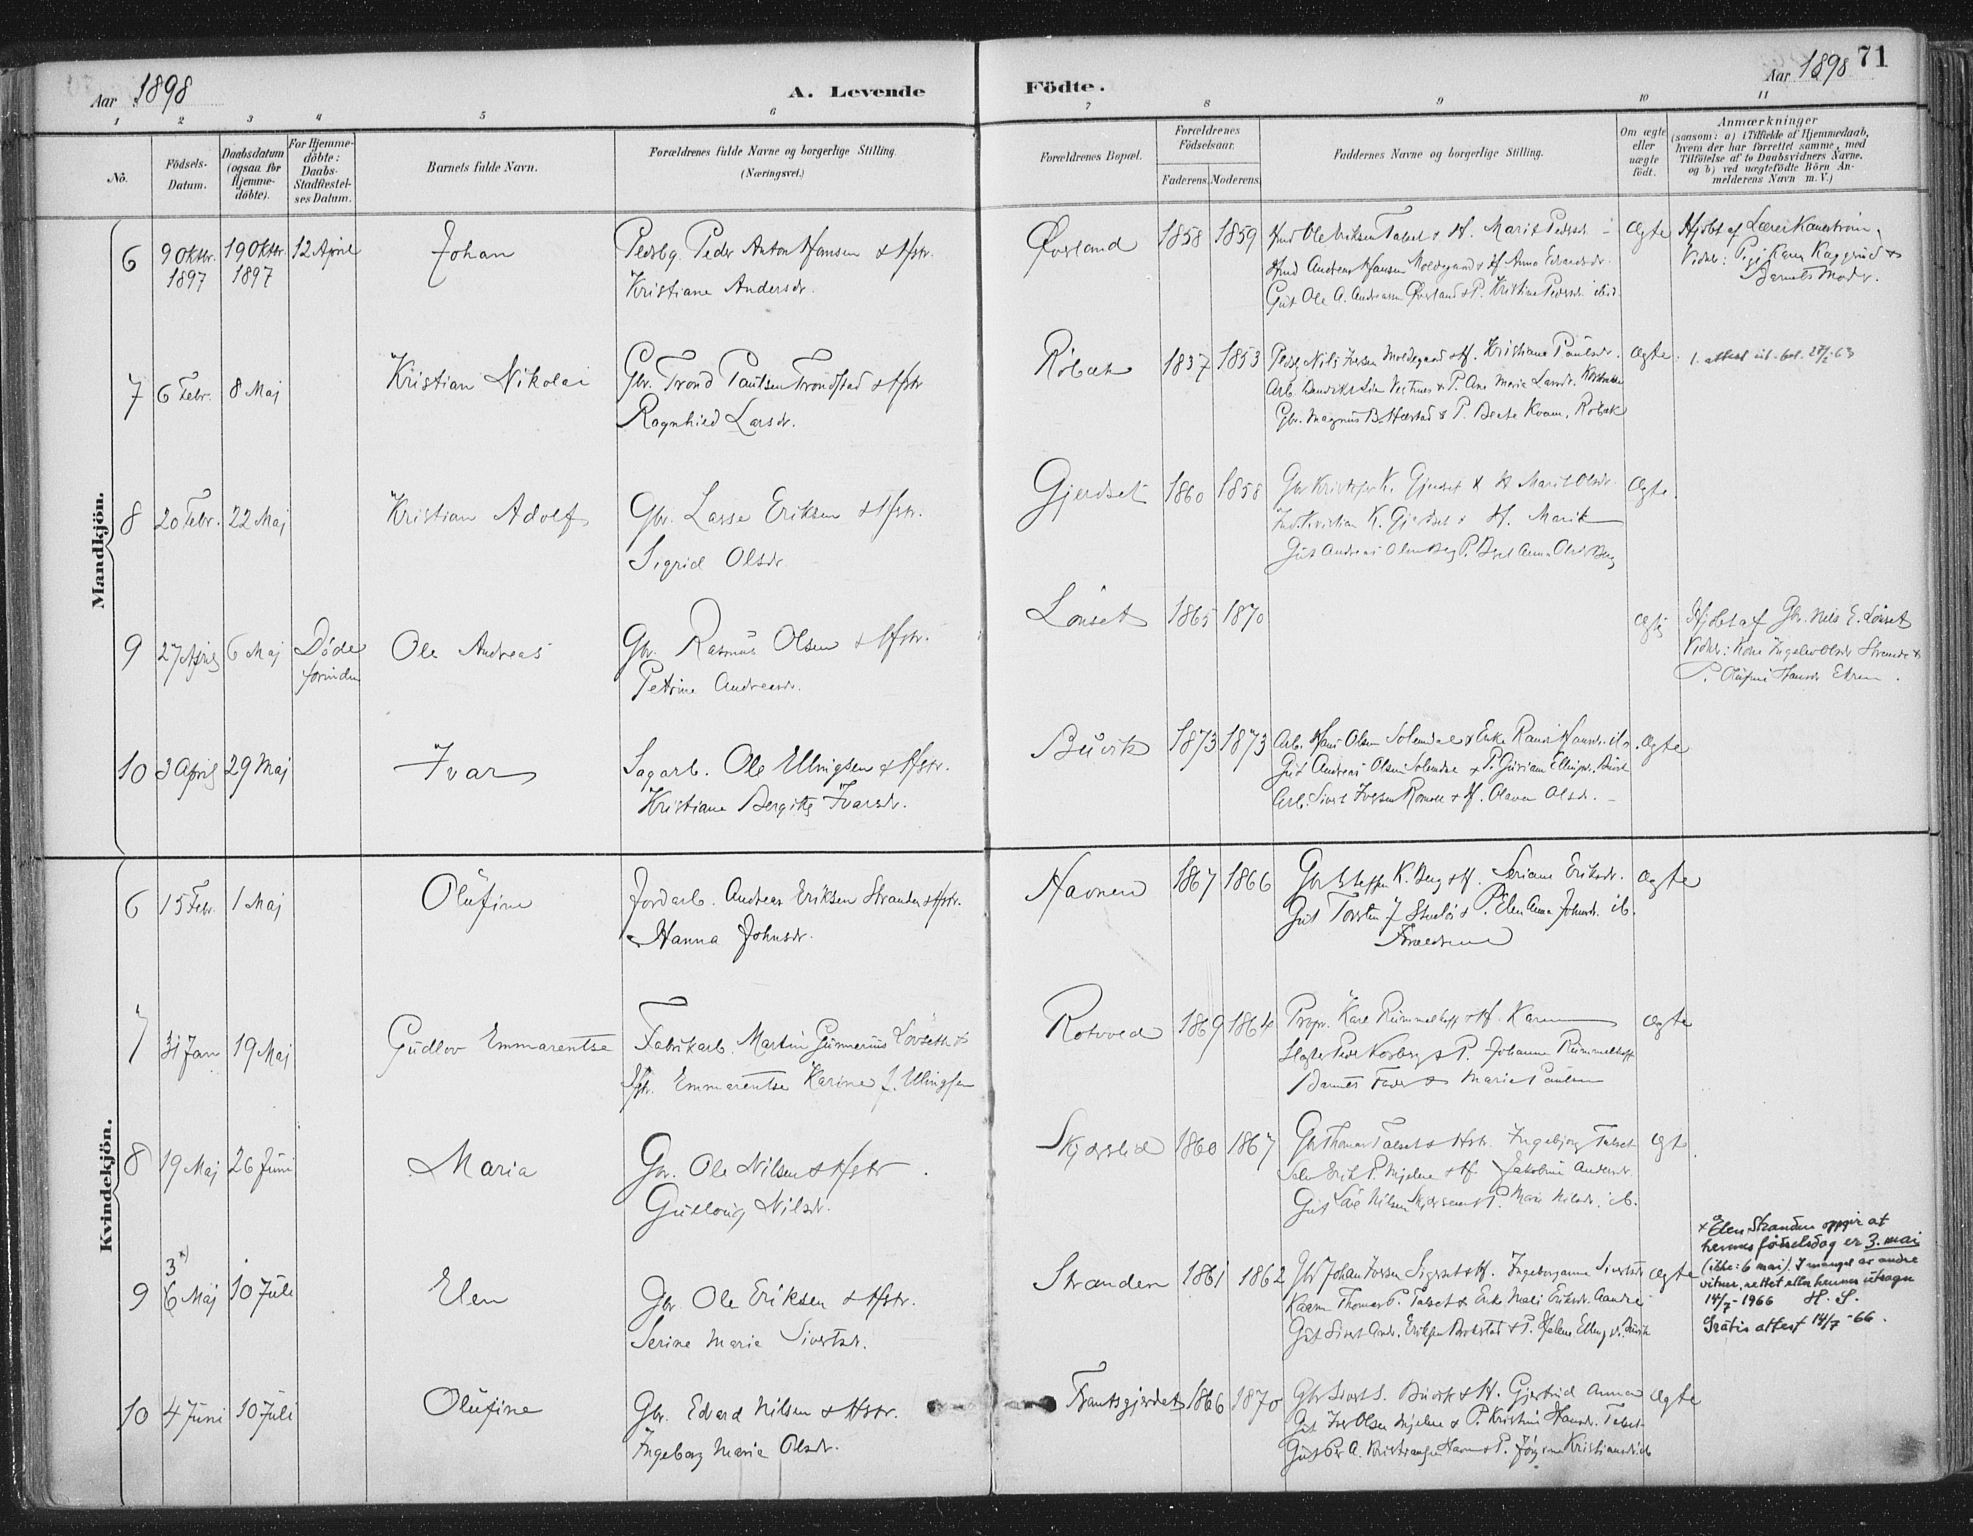 Aar 1898
A. Levende
Födte.
Aar 1898
71
1 2 3 4 5 6 7 8 9 10 11
No.
Födsels-Datum.
Daabsdatum (ogsaa for Hjemme-döbte).
For Hjemme-döbte: Daabs-Stadfæstel-ses Datum.
Barnets fulde Navn.
Forældrenes fulde Navne og borgerlige Stilling (Næringsvei.)
Forældrenes Bopæl.
Forældrenes Födselsaar.
Faderens. Moderens.
Faddernes Navne og borgerlige Stilling.
Om ægte eller uægte födt.
Anmærkninger
(saasom: a) i Tilfælde af Hjemmedaab,
hvem der har forrettet samme, med
Tilföielse af to Daabsvidners Navne,
og b) ved uægtefödte Börn An-
melderens Navn m. V.)
Mandkjön.
6 9 Oktbr. 1897 19 Oktbr. 1897 12 April Johan
Peder Anton Hansen & Hstr.
Kristiane Andersdr.
Øverland 1858 1859
Ole Eriksen & H. Marit Pedersdr.
Andreas Hansen Moldegaard & H. Anna
Gut Ole A. Andreassen Øverland & P. Kristine Pedersdr. ibid.
Ægte
Hjdöbt af Lærer
Barnets Moder.
7 6 Febr. 8 Maj Kristian Nikolai
Gbr. Trond Paulsen Trondstad & Hstr
Ragnhild Larsdr.
Røbæk 1837 1853
Nils Iversen Moldegaard & H. Kristiane Paulsdr.
& P. Ane Marie Larsdr.
Gbr. Magnus B. & P. Beate Kvam, Røbæk
Ægte
1. attest
8 20 Febr. 22 Maj Kristian Adolf
Gbr. Lasse Eriksen & Hstr.
Sigrid Olsdr.
Gjerdset 1860 1858
Gbr Kristofer K. Gjerdset & H Marit Olsdr.
Kristian K. Gjerdset & H. Marit
Gut Andreas Olsen Berg P. Anna Olsdr Berg
Ægte.
9 27 April 6 Maj Døde forinden Ole Andreas
Gbr. Rasmus Olsen & Hstr.
Petrine Andreasdr.
Lønset 1865 1870
Ægte
Hjdöbt af Gbr. Nils E. Lönset
Vidner: Kone Olsdr Strande &
P. Hansdr
10 3 April 29 Maj Ivar
Sagarb. Ole Ellingsen & Hstr.
Kristiane Bergitte Ivarsdr.
Buvik 1873 1873
Arb. Hans Olsen Solemdal & Enke Hansdr.
Gut Andreas Olsen Solemdal & P.
Arb. Sivert Iversen & H. Olava Olsdr.
Ægte
Kvindekjön.
6 15 Febr. 1 Maj Olufine
Jordarb. Andreas Eriksen Stranden & Hstr.
Hanna Johnsdr.
Havnen 1867 1866
Gbr Steffen K. Berg & H. Seriane Eriksdr.
Gut Torsten J & P. Elen Anna Johnsdr. ib.
Forældrene
Ægte
7 31 Jan 19 Maj Gudlov Emmarentse
Fabrikarb. Martin Gunnerius Lövseth &
Hstr. Emmarentse Karine J. Ellingsen
Rotvoed 1869 1864
Propr. Karl Rümmelhoff & H. Karen
& P. Johanne Rümmelhoff
Barnets Fader & Marie Paulsen
Ægte
8 19 Maj 26 Juni Maria
Gbr. Ole Nilsen & Hstr.
Gullaug Nilsdr.
Skjørslid 1860 1867
Gbr Thomas Talset & Hstr. Ingeborg Talset
Erik P. Mjelve & H. Jakobine Andersdr
Gut Nilsen & P. Nilsdr. ib.
Ægt.
9 3 x) 6 Maj 10 Juli Elen
Gbr Ole Eriksen & Hstr.
Serine Marie Sivertsdr.
Stranden 1861 1862
Gbr Johan Iversen & H. Ingeborganna Sivertsdr
Thomas P. Talset & Enke Eriksdr.
Gut Sivert Andr. Eriksen & P. Helene
Ægte
x Elen Stranden oppgir at
hennes fødselsdag er 3. mai
(ikke: 6 mai). I mangel av andre
vitner, rettet etter hennes utsagn
14/7-1966 H. S.
Gratis attest 14/7-66.
10 4 Juni 10 Juli Olufine
Gbr. Edvard Nilsen & Hstr.
Ingeborg Marie Olsdr.
Frantsgjerdet 1866 1870
Gbr Sivert S. Buvik & H. Gjertrud Anna
Gut Iver Olsen Mjelve & P. Kristine Hansdr. Talset
Gut Per A. Kristiansen & P. Jørgine Kristiansdr ib
Ægte